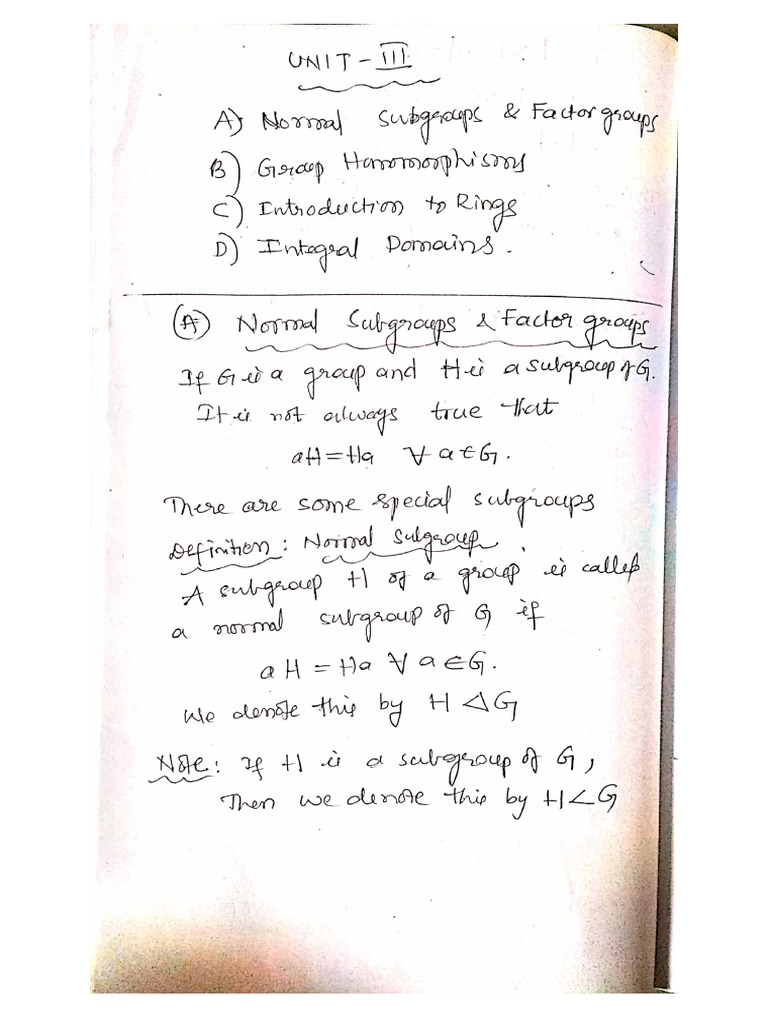 UNIT - III
A) Normal Subgroups & Factor groups
B) Group Homomorphisms
C) Introduction to Rings
D) Integral Domains.
(A) Normal Subgroups & Factor groups
If G is a group and H is a subgroup of G.
It is not always true that
aH = Ha ∀ a ∈ G.
There are some special subgroups
Definition: Normal Subgroup.
A subgroup H of a group is called
a normal subgroup of G if
aH = Ha ∀ a ∈ G.
We denote this by H ⊲ G
Note: If H is a subgroup of G,
Then we denote this by H < G